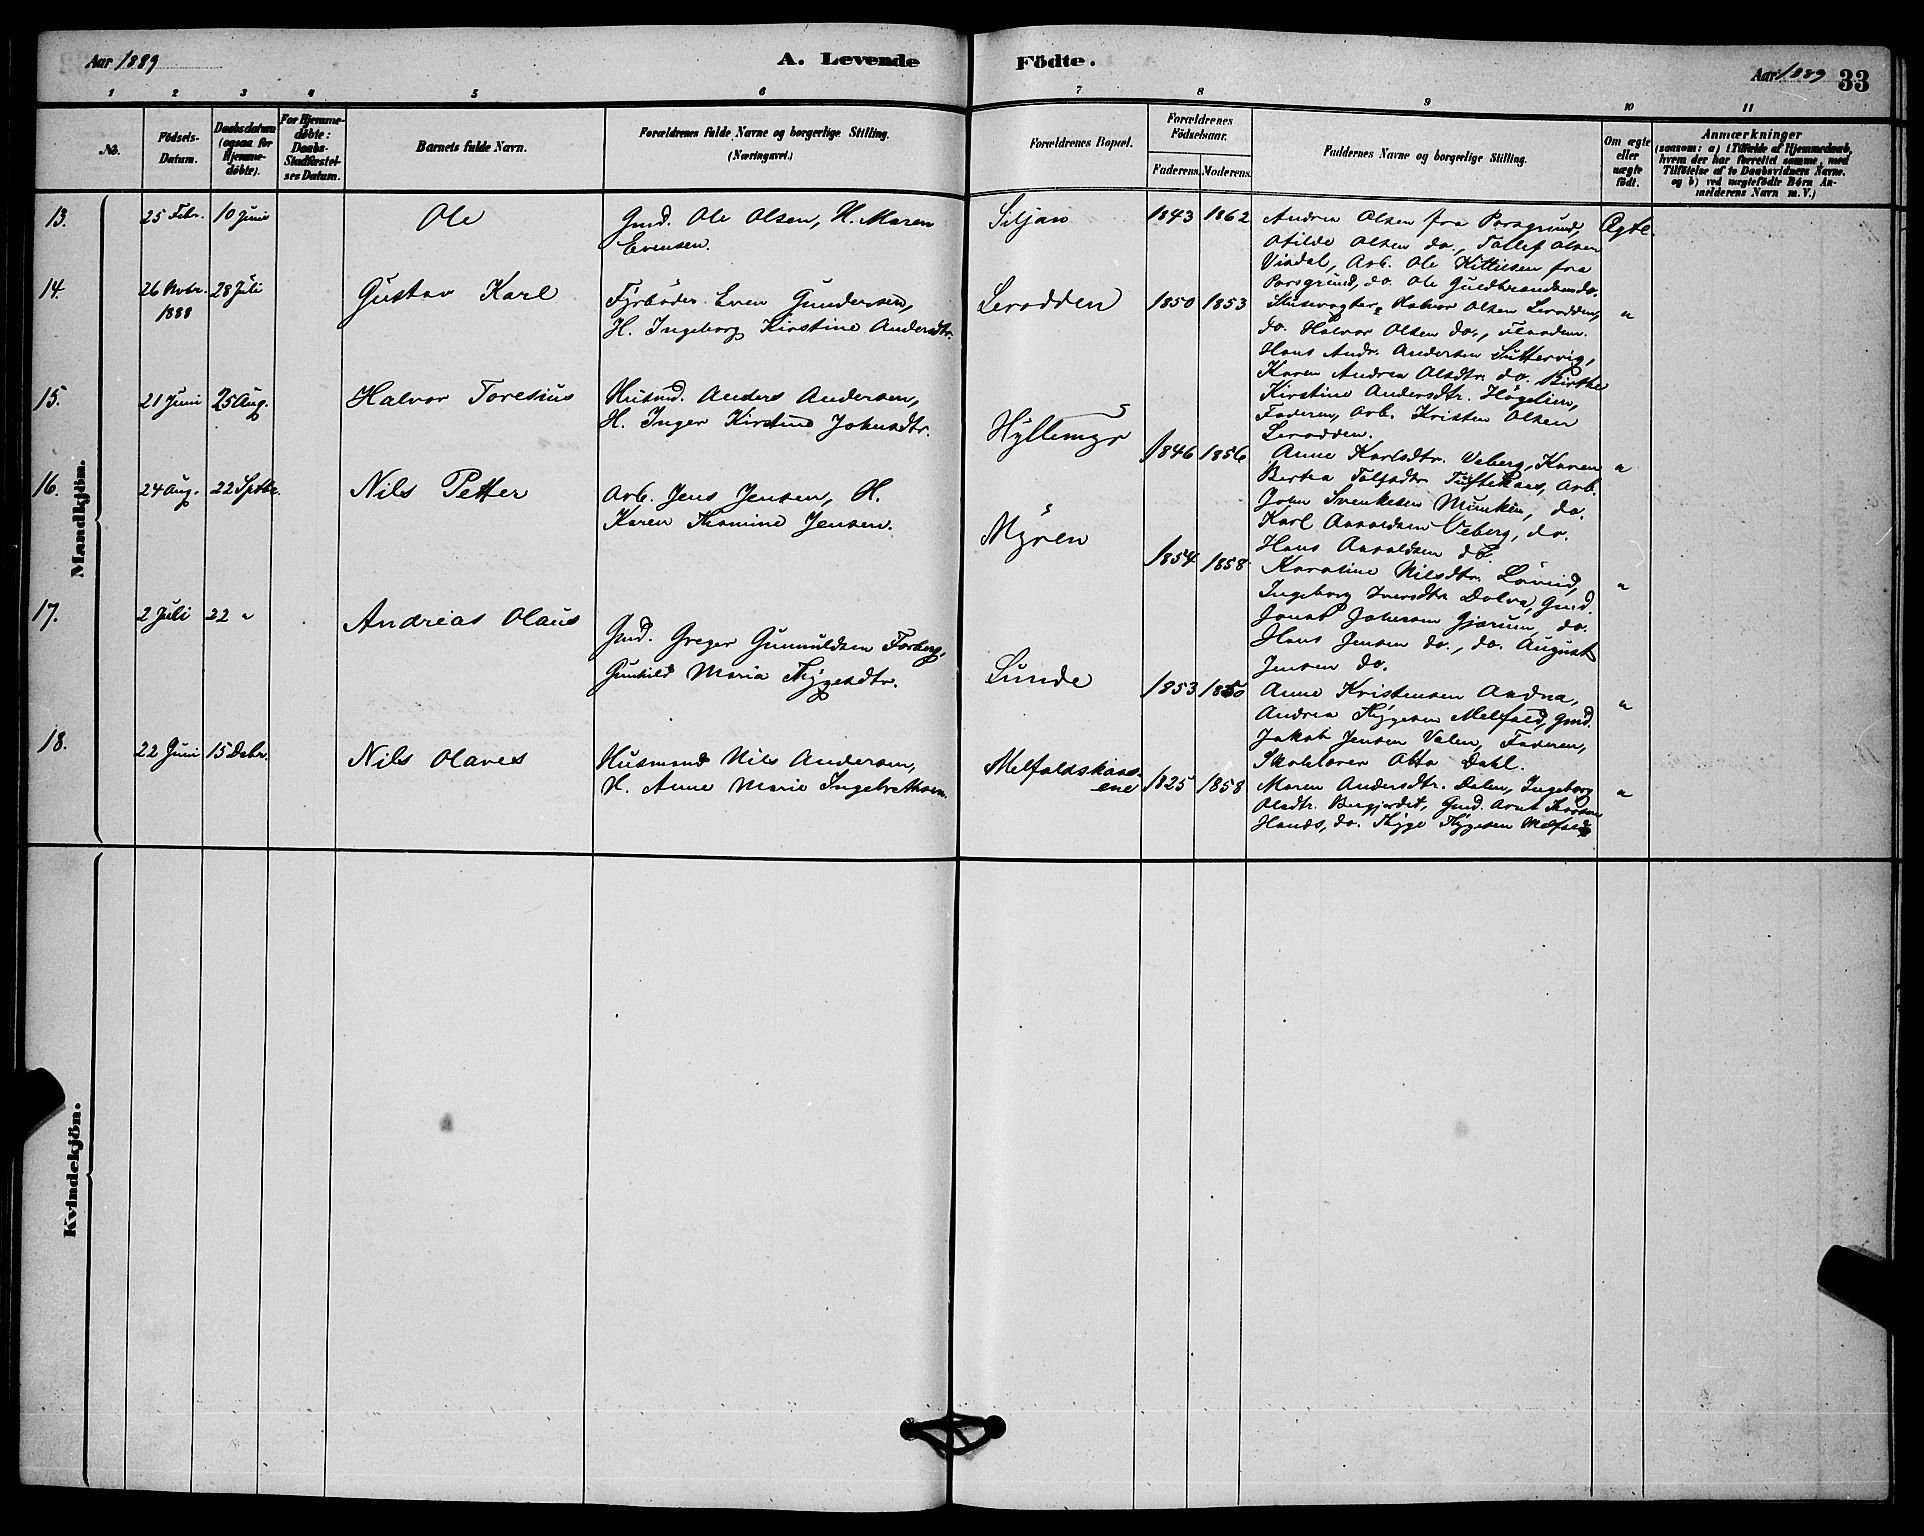 Aar 1889
A. Levende
Födte.
Aar 1889
33
1 2 3 4 5 6 7 8 9 10 11
No.
Födsels-
Datum.
Daabsdatum
(ogsaa for
Hjemme-
døbte).
For Hjemme-
døbte:
Daabs-
Stadfæstel-
ses Datum.
Barnets fulde Navn.
Forældrenes fulde Navne og borgerlige Stilling.
(Næringsvei.)
Forældrenes Bopæl.
Forældrenes
Födselsaar.
Faderens. Moderens.
Faddernes Navne og borgerlige Stilling.
Om ægte
eller
uægte
født.
Anmærkninger
(saasom: a) i Tilfælde af Hjemmedaab,
hvem der har forrettet samme, med
Tilføielse af to Daabsvidners Navne.
og b) ved uægtefødte Børn An-
melderens Navn m. V.)
Mandkjön.
13.
25 Febr.
10 Juni
Ole
Gmd. Ole Olsen, H. Maren
Evensen.
Siljan
1843 1862
Andrea Olsen fra Porsgrund,
Otilde Olsen do., Tollef Olsen
Visdal, Arb. Ole Kittilsen fra
Porsgrund, do. Ole Guldbrandsen do.
Ægte.
14.
26 Novbr.
1888
28 Juli
Gustav Karl
Fyrbøder Even Gundersen,
H. Ingeborg Kirstine Andersdtr.
Leradden
1850 1853
Halvor Olsen Leradden,
do. Halvor Olsen do.,
Hans Andr. Andersen
Karen Andrea Olsdtr. do. Birthe
Kirstine Andersdtr.
Faderen, Arb. Kristen Olsen
Leradden.
"
15.
21 Juni
25 Aug.
Halvor Toresius
Husmd. Anders Andersen,
H. Inger Kirstine Johnsdtr.
Hyllemyr
1846 1856
Anne Karlsdtr. Veberg, Karen
Bertea Arb.
John Svenkesen Munken, do.
Karl Aavaldsen Veberg, do.
Hans Aavaldsen do.
"
16.
24 Aug.
22 Septbr.
Nils Petter
Arb. Jens Jensen, H.
Karen Thomine Jensen.
Myren
1854 1858
Karoline Nilsdtr. Løveid,
Ingeborg Iversdtr. Dolva, Gmd.
Johnsen Gjærum, do.
Hans Jensen do., do. August
Jensen do.
"
17.
2 Juli
22 "
Andreas Olaus
Gmd. Greger Gunnuldsen Forberg,
Gunhild Maria Thygesdtr.
Lunde
1853 1850
Anne Kristensen
Andrea Thygesen Melfald, Gmd.
Jakob Jensen Valen, Faderen,
Skolelærer Otto Dahl.
"
18.
22 Juni
15 Decbr.
Nils Olaves
Husmand Nils Andersen,
H. Anne Marie Ingebrethsen.
Melfaldskaas-
ene
1825 1858
Maren Andersdtr. Dalen, Ingeborg
Olsdtr. Bergjordet, Gmd.
do. Thyge Thygesen Melfald
"
Kvindekjön.